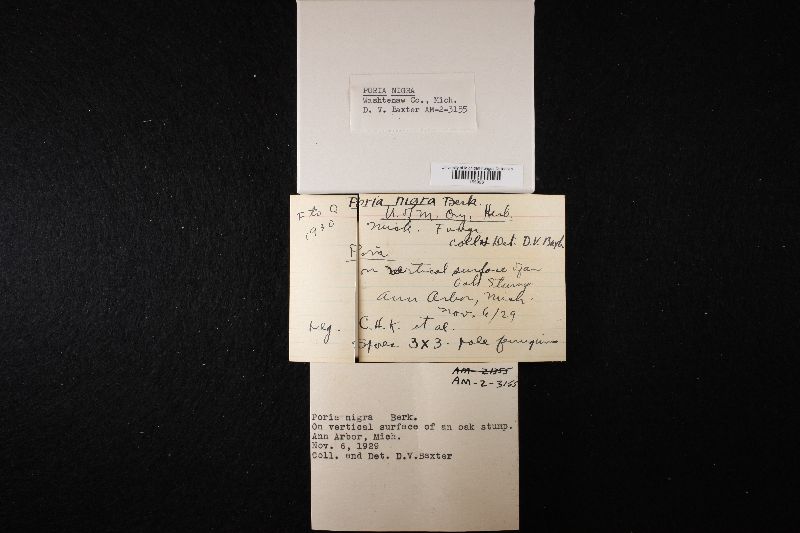 PORIA NIGRA
Washtenaw Co., Mich.
D. V. Baxter AM-2-3155
Poria nigra Berk.
F to Q
1930
U. of M. Cry. Herb.
Mich. Fungi
Coll & Det. D.V. Baxter
Poria
on vertical surface of an
oak stump
Ann Arbor, Mich.
Nov. 6/29
Leg. C.H.K. et al.
Spores 3x3. pale
AM-2-3155
Poria nigra Berk.
On vertical surface of an oak stump.
Ann Arbor, Mich.
Nov. 6, 1929
Coll. and Det. D.V.Baxter